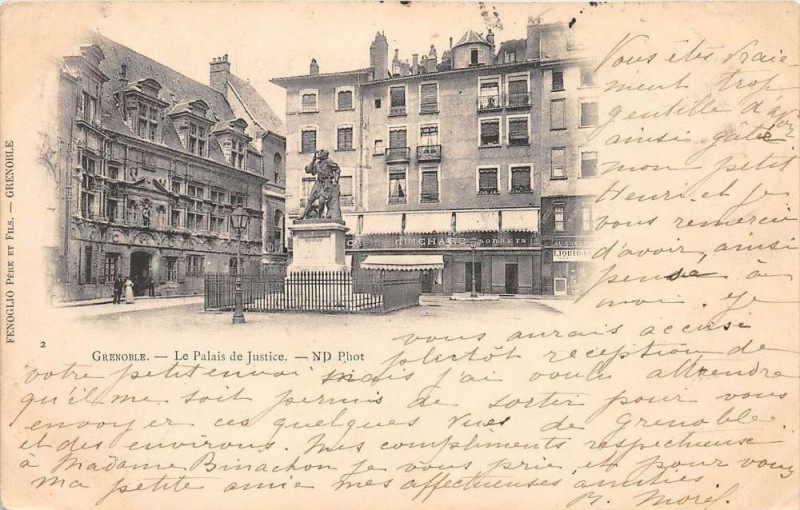 FENOGLIO PÈRE ET FILS. — GRENOBLE
GUICHARD SORBETS
LIQUIDA
2
GRENOBLE. — Le Palais de Justice. — ND Phot
Vous êtes vraie
ment trop
gentille d'avoir
ainsi gâté
mon petit
Henri et je
vous remercie
d'avoir, ainsi
pensé à
moi. Je
vous aurais accusé
plertôt réception de
votre petit envoi mais j'ai voulu attendre
qu'il me soit permis de sortir pour vous
envoyer ces quelques vues de Grenoble
et des environs. Mes compliments respectueuse
à Madame Binachon je vous prie, et pour vous
ma petite amie mes affectueuses amitiés
M. Morel